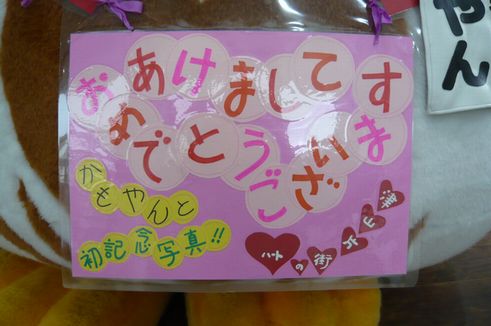 あけまして
おめでとうございます
かもやんと
初記念写真!!
ハートの街
やん